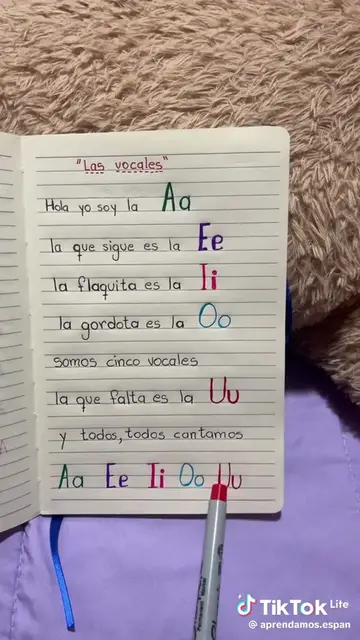 "Las vocales"
Hola yo soy la Aa
la que sigue es la Ee
la flaquita es la Ii
la gordota es la Oo
somos cinco vocales
la que falta es la Uu
y todos, todos cantamos
Aa Ee Ii Oo Uu
TikTok Lite
@aprendamos.espan